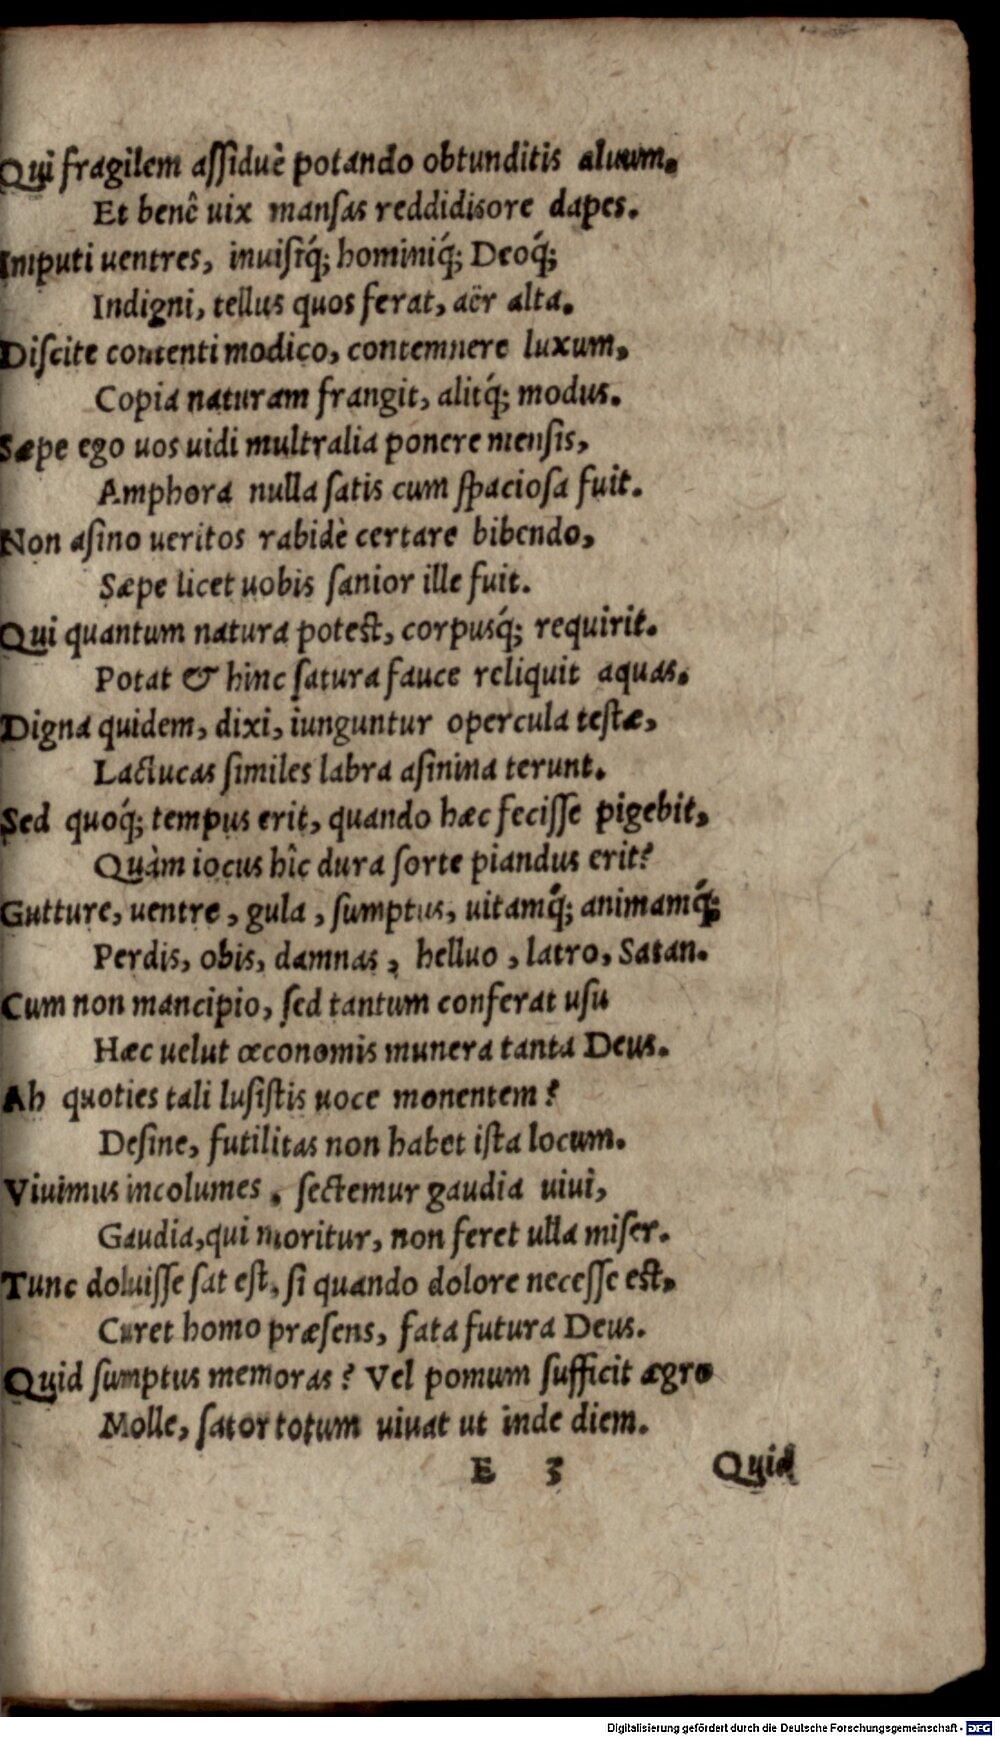 Qui fragilem aſſiduè potando obtunditis aluum.
Et benè uix manſas reddidisore dapes.
Imputi uentres, inuiſiq́; hominiq́; Deoq́;
Indigni, tellus quos ferat, aër alta.
Diſcite contenti modico, contemnere luxum,
Copia naturam frangit, alitq́; modus.
Sæpe ego uos uidi multralia ponere menſis,
Amphora nulla ſatis cum ſpacioſa fuit.
Non aſino ueritos rabidè certare bibendo,
Sæpe licet uobis ſanior ille fuit.
Qui quantum natura poteſt, corpusq́; requirit.
Potat & hinc ſatura fauce reliquit aquas.
Digna quidem, dixi, iunguntur opercula teſtæ,
Lactucas ſimiles labra aſinina terunt.
Sed quoq́; tempus erit, quando hæc feciſſe pigebit,
Quàm iocus hîc dura ſorte piandus erit?
Gutture, uentre, gula, ſumptus, uitamq́; animamq́;
Perdis, obis, damnas, helluo, latro, Satan.
Cum non mancipio, ſed tantum conferat uſu
Hæc uelut œconomis munera tanta Deus.
Ah quoties tali luſiſtis uoce monentem?
Deſine, futilitas non habet iſta locum.
Viuimus incolumes. ſectemur gaudia uiui,
Gaudia, qui moritur, non feret ulla miſer.
Tunc doluiſſe ſat eſt, ſi quando dolore neceſſe eſt,
Curet homo præſens, fata futura Deus.
Quid ſumptus memoras? Vel pomum ſufficit ægro
Molle, ſator totum uiuat ut inde diem.
E 3 Quid
Digitalisierung gefördert durch die Deutsche Forschungsgemeinschaft - DFG